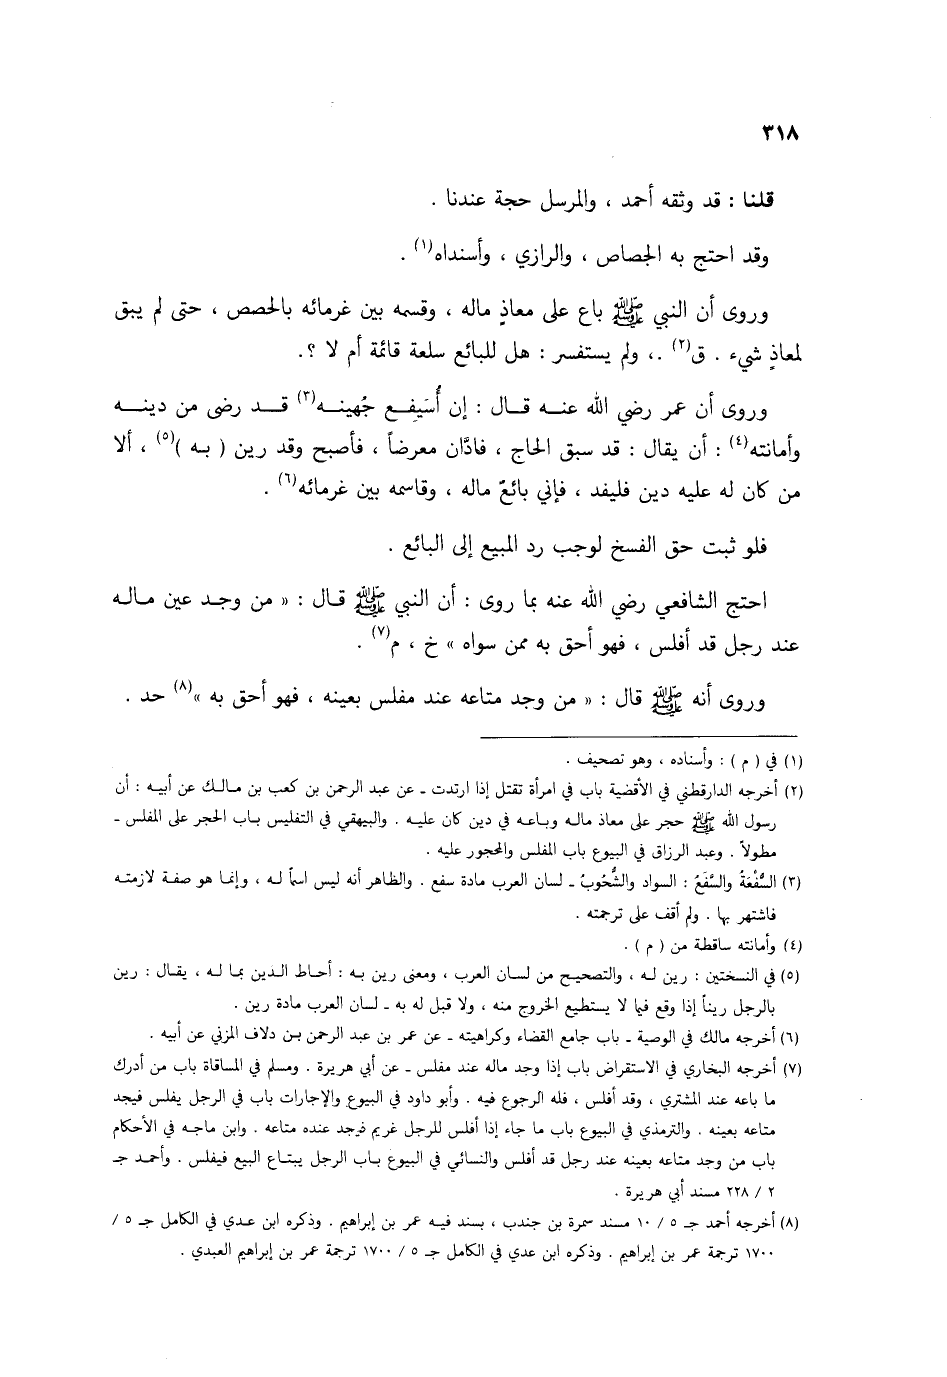 ٣١٨
قلنا : قد وثقه أحمد ، والمرسل حجة عندنا .
وقد احتج به الجصاص ، والرازي ، وأسنداه(١) .
وروى أن النبي ﷺ باع على معاذٍ ماله ، وقسمه بين غرمائه بالحصص ، حتى لم يبق
لمعاذٍ شيء . ق(٢) .، ولم يستفسر : هل للبائع سلعة قائمة أم لا ؟.
وروى أن عمر رضي الله عنه قال : إن أُسَيفِع جُهينه(٣) قد رضى من دينه
وأمانته(٤) : أن يقال : قد سبق الحاج ، فادَّان معرضاً ، فأصبح وقد رين ( به )(٥) ، ألا
من كان له عليه دين فليفد ، فإني بائعٌ ماله ، وقاسمه بين غرمائه(٦) .
فلو ثبت حق الفسخ لوجب رد المبيع إلى البائع .
احتج الشافعي رضي الله عنه بما روى : أن النبي ﷺ قال : « من وجد عين ماله
عند رجل قد أفلس ، فهو أحق به ممن سواه » خ ، م(٧) .
وروى أنه ﷺ قال : « من وجد متاعه عند مفلس بعينه ، فهو أحق به »(٨) حد .
(١) في ( م ) : وأسناده ، وهو تصحيف .
(٢) أخرجه الدارقطني في الأقضية باب في امرأة تقتل إذا ارتدت ـ عن عبد الرحمن بن كعب بن مالك عن أبيه : أن
رسول الله ﷺ حجر على معاذ ماله وباعه في دين كان عليه . والبيهقي في التفليس باب الحجر على المفلس ـ
مطولاً . وعبد الرزاق في البيوع باب المفلس والمحجور عليه .
(٣) السُّفْعَةُ والسَّفَعُ : السواد والشُّحُوبُ ـ لسان العرب مادة سفع . والظاهر أنه ليس اسماً له ، وإنما هو صفة لازمته
فاشتهر بها . ولم أقف على ترجمته .
(٤) وأمانته ساقطة من ( م ) .
(٥) في النسختين : رين له ، والتصحيح من لسان العرب ، ومعنى رين به : أحاط الدين بما له ، يقال : رين
بالرجل ريناً إذا وقع فيما لا يستطيع الخروج منه ، ولا قبل له به ـ لسان العرب مادة رين .
(٦) أخرجه مالك في الوصية ـ باب جامع القضاء وكراهيته ـ عن عمر بن عبد الرحمن بن دلاف المزني عن أبيه .
(٧) أخرجه البخاري في الاستقراض باب إذا وجد ماله عند مفلس ـ عن أبي هريرة . ومسلم في المساقاة باب من أدرك
ما باعه عند المشتري ، وقد أفلس ، فله الرجوع فيه . وأبو داود في البيوع والإجارات باب في الرجل يفلس فيجد
متاعه بعينه . والترمذي في البيوع باب ما جاء إذا أفلس للرجل غريم فيجد عنده متاعه . وابن ماجه في الأحكام
باب من وجد متاعه بعينه عند رجل قد أفلس والنسائي في البيوع باب الرجل يبتاع البيع فيفلس . وأحمد جـ
٢ / ٢٢٨ مسند أبي هريرة .
(٨) أخرجه أحمد جـ ٥ / ١٠ مسند سمرة بن جندب ، بسند فيه عمر بن إبراهيم . وذكره ابن عدي في الكامل جـ ٥ /
١٧٠٠ ترجمة عمر بن إبراهيم . وذكره ابن عدي في الكامل جـ ٥ / ١٧٠٠ ترجمة عمر بن إبراهيم العبدي .